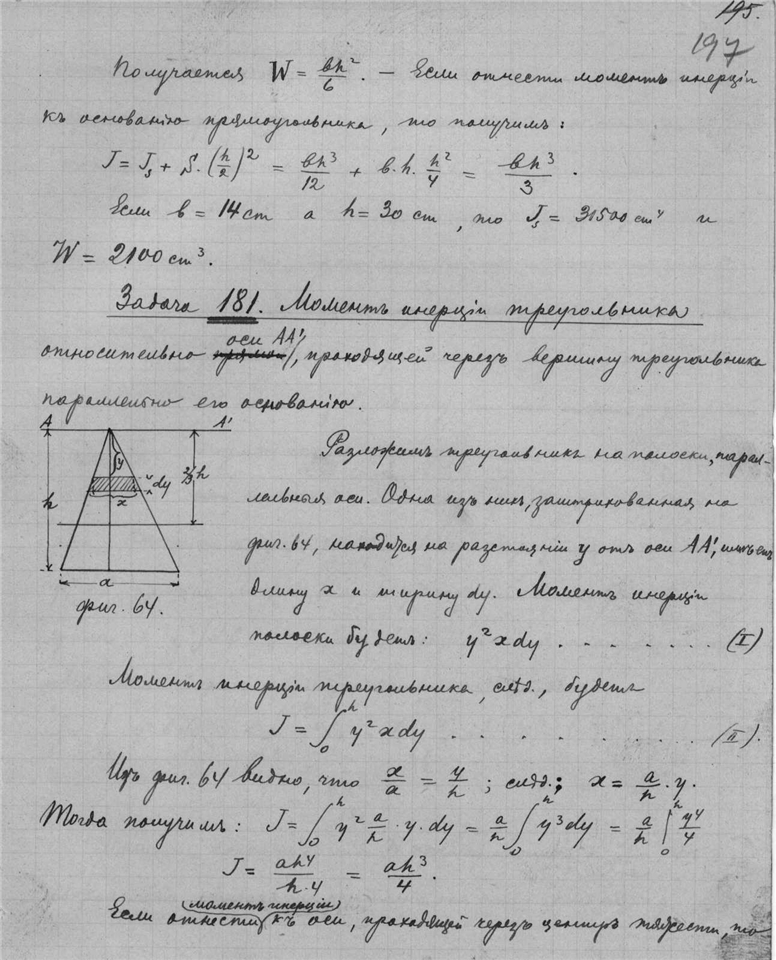 195.
197
Получается W = вh²/6. — Если отнести моментъ инерціи
къ основанію прямоугольника, то получимъ:
J = Jₛ + S·(h/2)² = вh³/12 + в·h·h²/4 = вh³/3.
Если в = 14 cm а h = 30 cm, то Jₛ = 31500 cm⁴ и
W = 2100 cm³.
Задача 181. Моментъ инерціи треугольника
относительно прямой оси AA', проходящей черезъ вершину треугольника
параллельно его основанію.
A A'
y
dy
x
h
2/3 h
a
фиг. 64.
Разложимъ треугольникъ на полоски, парал-
лельныя оси. Одна изъ нихъ, заштрихованная на
фиг. 64, находится на разстояніи y отъ оси AA', имѣетъ
длину x и ширину dy. Моментъ инерціи
полоски будетъ: y²xdy . . . . . . . . (I)
Моментъ инерціи треугольника, слѣд., будетъ
J = ∫₀ʰ y²xdy . . . . . . . . . . (II).
Изъ фиг. 64 видно, что x/a = y/h ; слѣд.; x = a/h · y.
Тогда получимъ: J = ∫₀ʰ y² a/h · y · dy = a/h ∫₀ʰ y³dy = a/h |₀ʰ y⁴/4
J = ah⁴/h·4 = ah³/4.
Если отнести (моментъ инерціи) къ оси, проходящей черезъ центръ тяжести, то